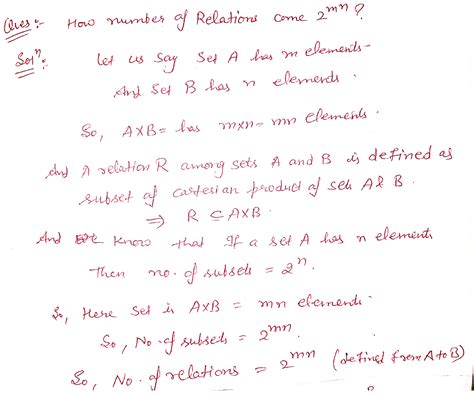 Ques:- How number of Relations come 2^mn ?
Solⁿ:- let us say Set A has m elements-
And Set B has n elements.
So, A×B= has m×n= mn elements.
And A relation R among sets A and B is defined as
subset of cartesian product of sets A & B.
⇒ R ⊆ A×B.
And know that If a set A has n elements
Then no. of subsets = 2^n.
So, Here Set is A×B = mn elements.
So, No. of subsets = 2^mn
So, No. of relations = 2^mn (defined from A to B)